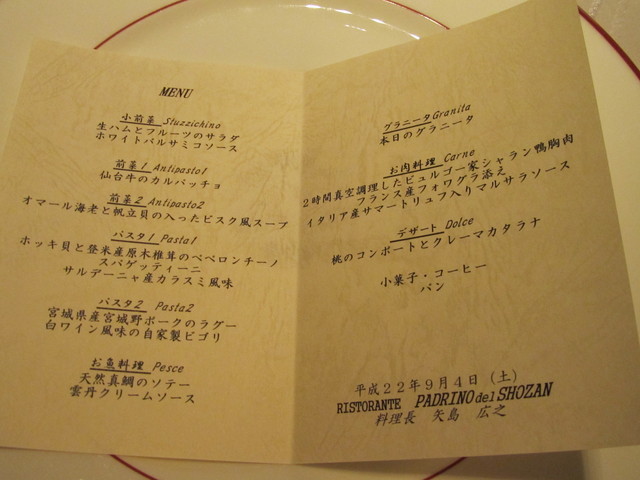 MENU
小前菜 Stuzzichino
生ハムとフルーツのサラダ
ホワイトバルサミコソース
前菜1 Antipasto1
仙台牛のカルパッチョ
前菜2 Antipasto2
オマール海老と帆立貝の入ったビスク風スープ
パスタ1 Pasta1
ホッキ貝と登米産原木椎茸のペペロンチーノ
スパゲッティーニ
サルデーニャ産カラスミ風味
パスタ2 Pasta2
宮城県産宮城野ポークのラグー
白ワイン風味の自家製ビゴリ
お魚料理 Pesce
天然真鯛のソテー
雲丹クリームソース
グラニータGranita
本日のグラニータ
お肉料理 Carne
2時間真空調理したビュルゴー家シャラン鴨胸肉
フランス産フォワグラ添え
イタリア産サマートリュフ入りマルサラソース
デザート Dolce
桃のコンポートとクレーマカタラナ
小菓子・コーヒー
パン
平成22年9月4日(土)
RISTORANTE PADRINO del SHOZAN
料理長 矢島 広之